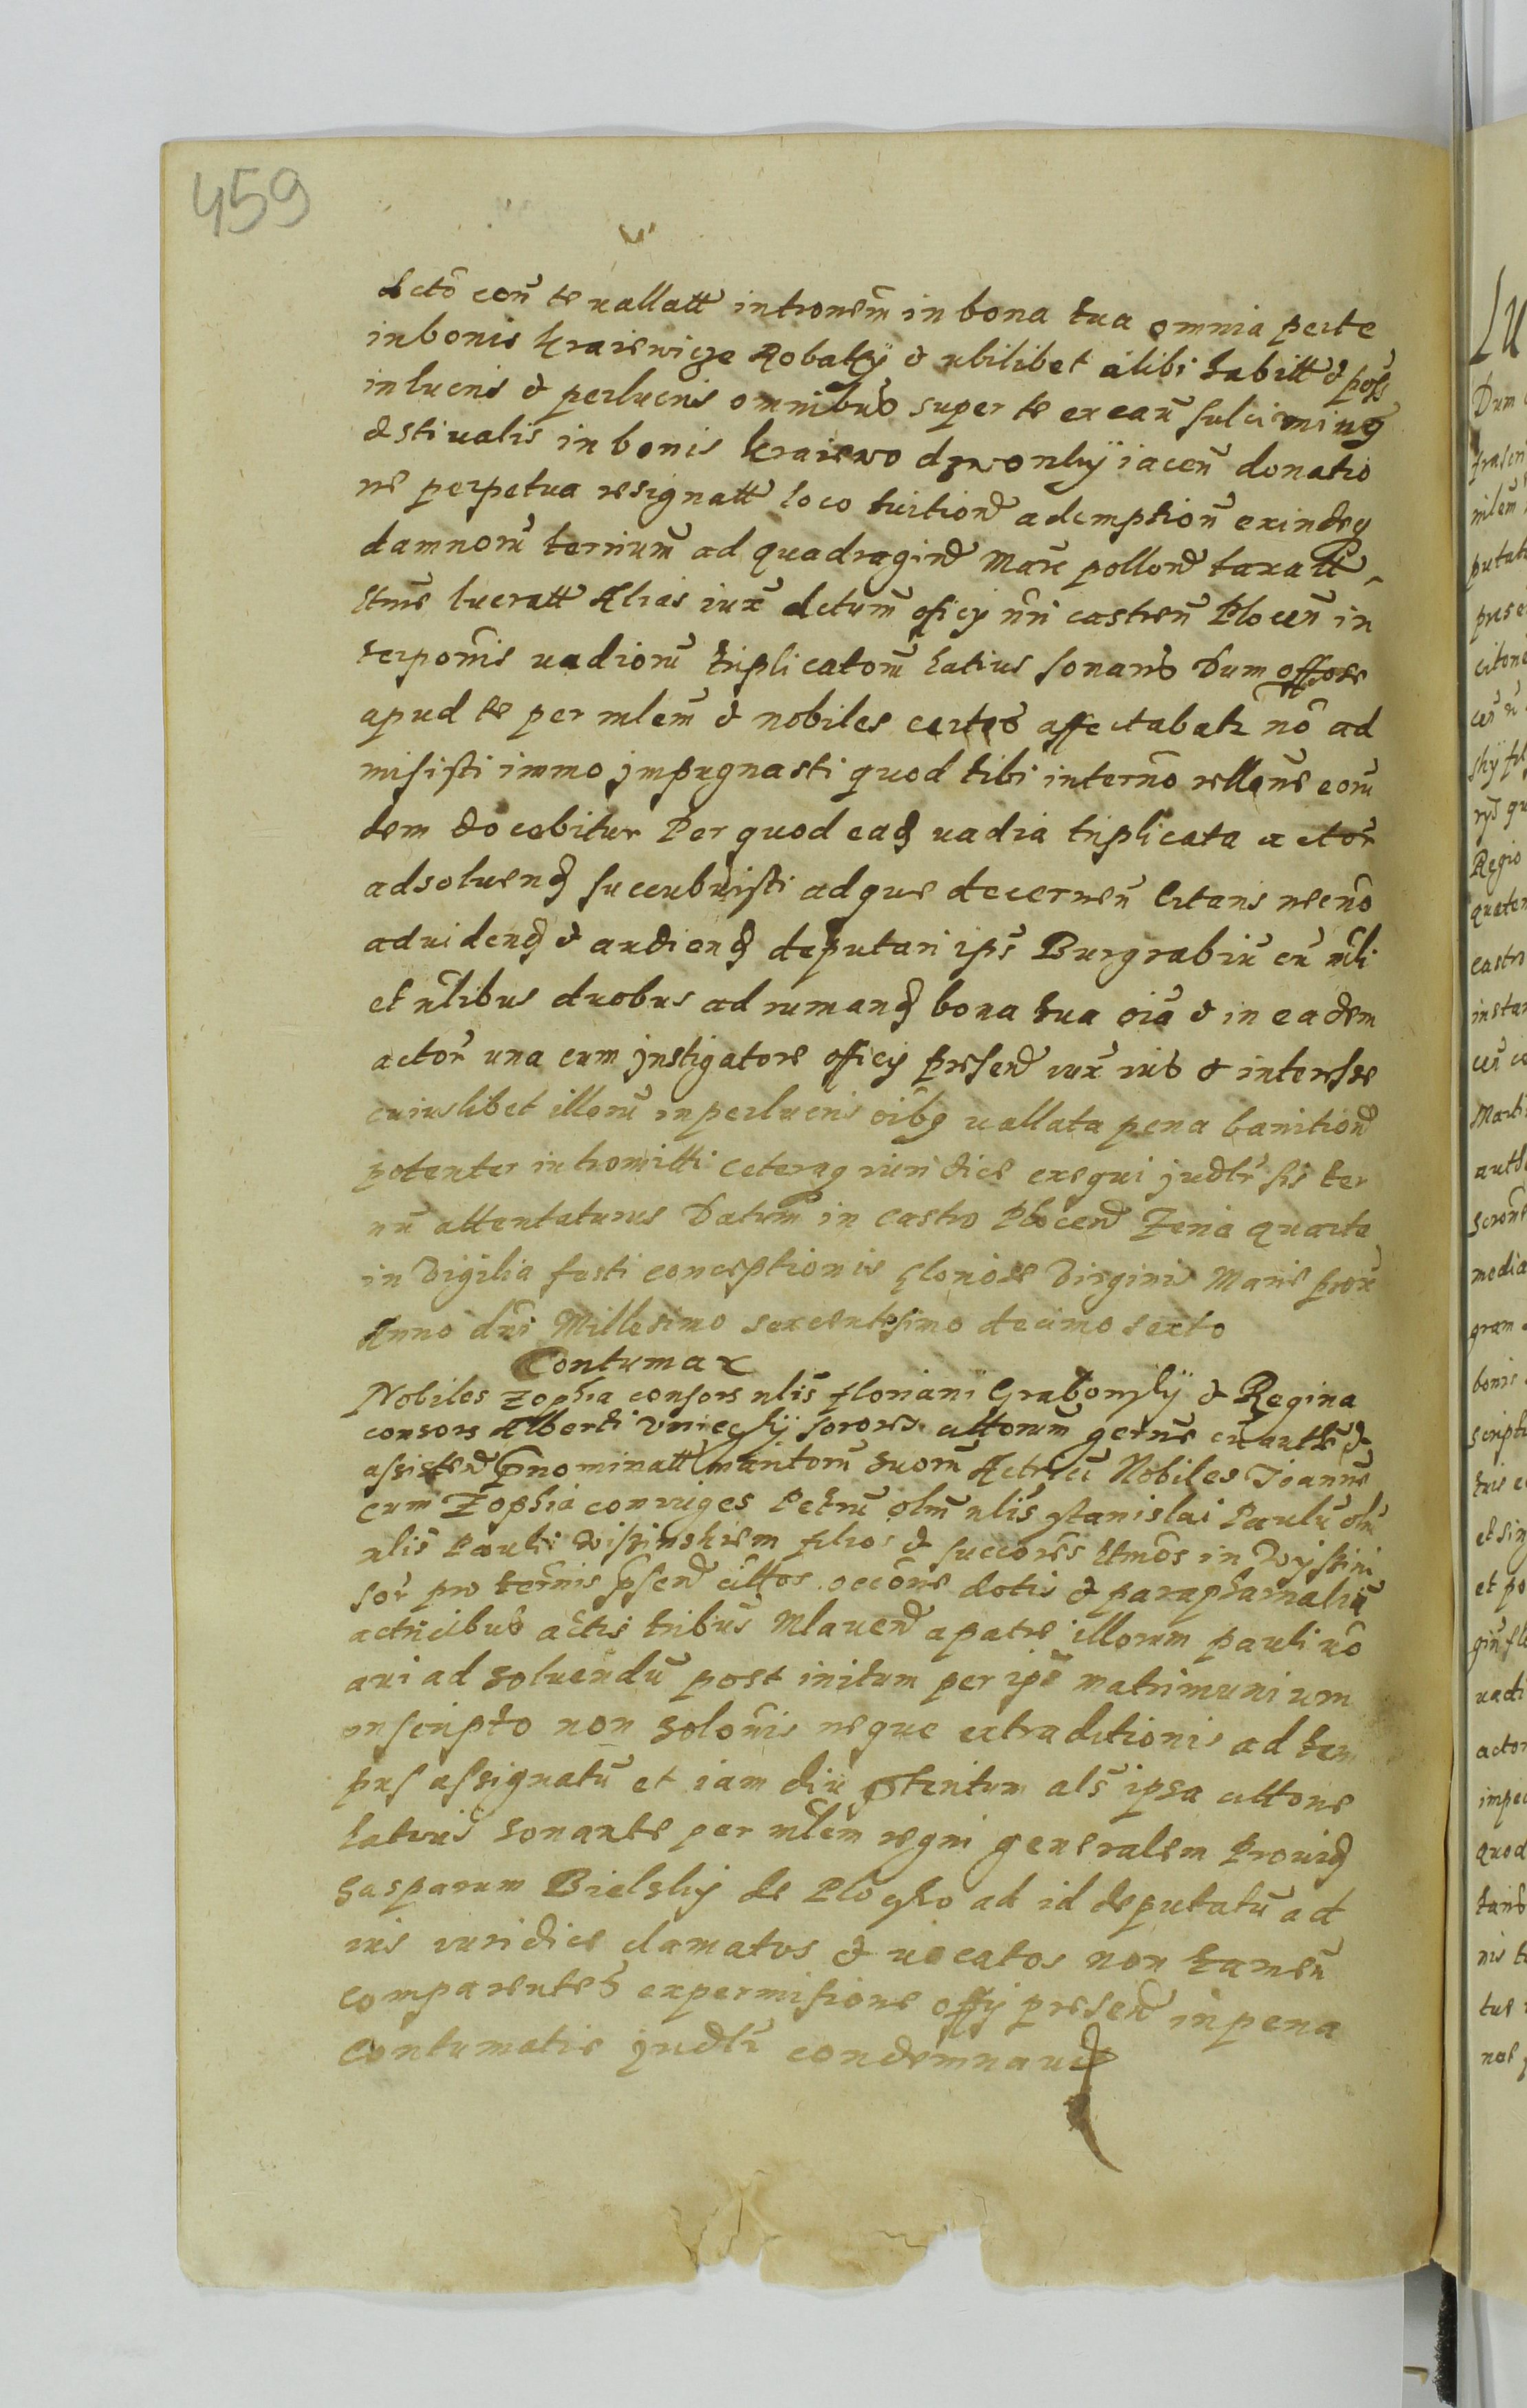 459
dcto con te uallatt intronem in bona tua omnia perte
in bonis Kraiewicze Robaky & ubilibet alibi habitt & poss
in lucris & perlucris omnibus super te ex cau
&stiualis in bonis Kraiewo dzwonky iacen donatio
ne perpetua resignatt loco tuition ademption exindeq
damnoru terrium ad quadragind Marc pollond taxatt
lucratt Alias iux actum officij nri castren Plocen in
terponis uadioru triplicatoru latius sonans Dum offose
apud te per mlem & nobiles certos affectabatr no ad
misisti immo impugnasti quod tibi in termo rellone eoru
dem docebitur Per quod eadem uadia triplicata actori
ad soluend succubuisti ad que decernen citaris necno
ad uidend & audiend deputari ips Burgrabiu cu mli
et nlibus duobus ad rumand bona tua oia & in eadem
actor una cum instigatore officij presend iux ius & interesse
cuiuslibet illoru in perlucris oibq uallata pena banitiond
potenter intromitti ceteraq iuridice exequi judtr sis ter
nu attentaturus Datum in castro Plocend Feria quarta
in Vigilia festi conceptionis Gloriose Virginis Marie prox
Anno dni Millesimo sexcentesimo decimo sexto
Contumax
Nobiles Zophia consors nlis Floriani Grabowsky & Regina
consors Alberti sorores actorum germe cu auth &
assisten pnominatt maritoru suoru Actrices Nobiles Joannem
cum Zophia coniuges Petru olim nlis Stanislai Paulu olm
nlis Pauli filios & succores in
sor pro termis psend cittos occone dotis & paraphernaliu
actricibus actis tribus Mlauend a patre illorum pauli uo
aui ad soluendu post initum per ips matrimunium
inscripto non solonis neque extraditionis ad tem
pus assignatu et iam diu ptentum als ipsa cittone
latius sonante per mlem regni generalem Prouid
Gasparum Bielsky de Plo ad id deputatu ad
ius iuridice clamatos & uocatos non tamen
comparentes ex permisione offy presend in pena
contumatie judtr condemnaud